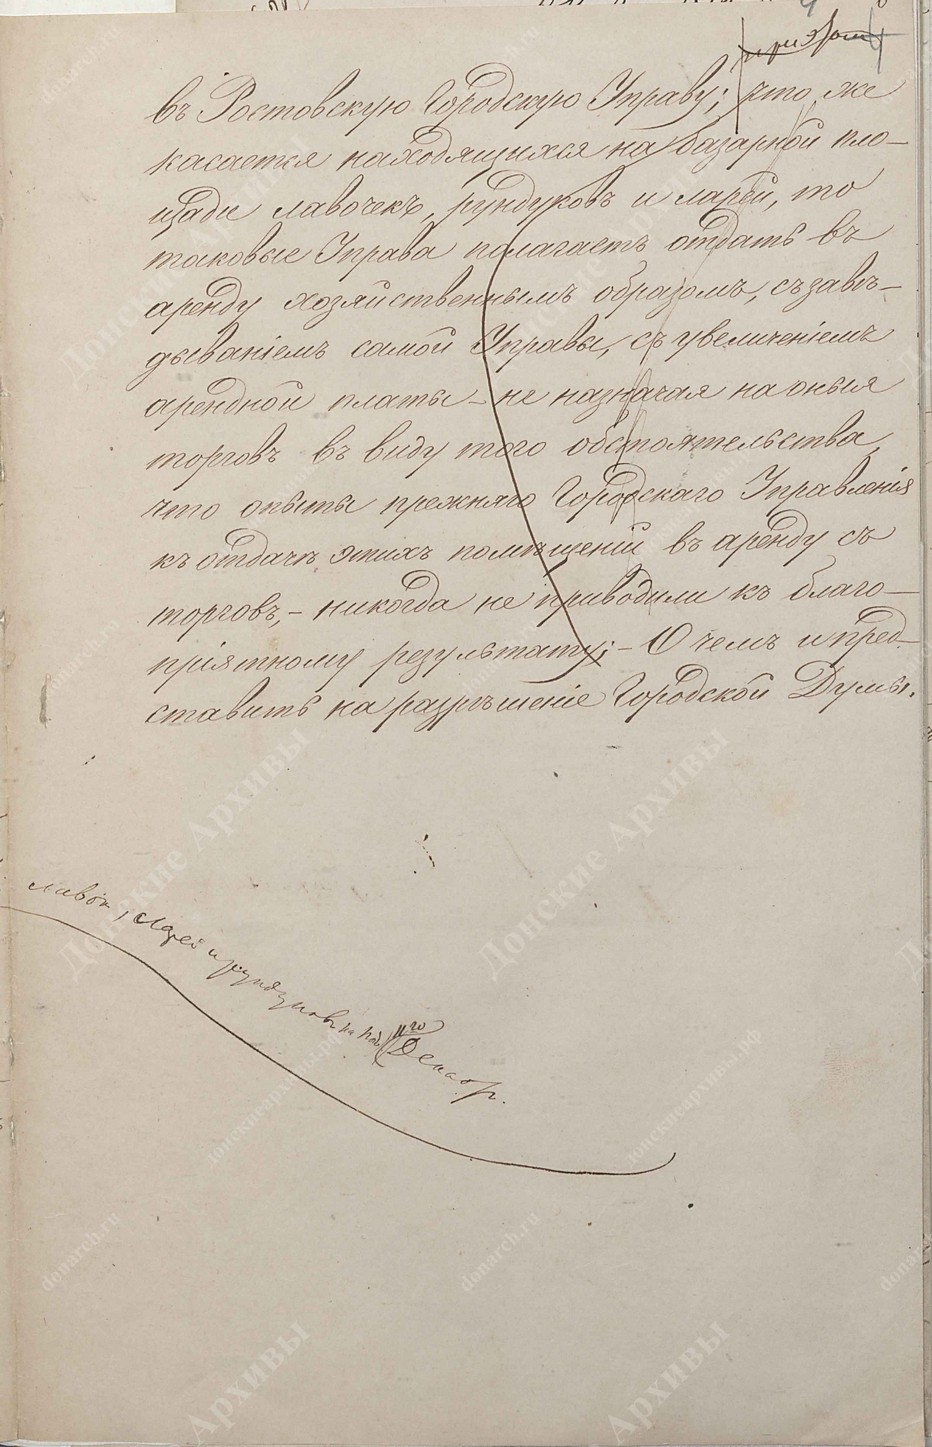 при этомъ
въ Ростовскую Городскую Управу; что же
касается находящихся на базарной пло-
щади лавочекъ, рундуковъ и ларей, то
таковые Управа полагаетъ отдать въ
аренду хозяйственнымъ образомъ, съ завѣ-
дываніемъ самой Управы, съ увеличеніемъ
арендной платы – не назначая на оныя
торговъ въ виду того обстоятельства,
что опыты прежняго Городскаго Управленія
къ отдачѣ этихъ помѣщеній въ аренду съ
торговъ, – никогда не приводили къ благо-
пріятному результату; – О чемъ и пред-
ставить на разрѣшеніе Городской Думы.
лавок, ларей и рундуков на